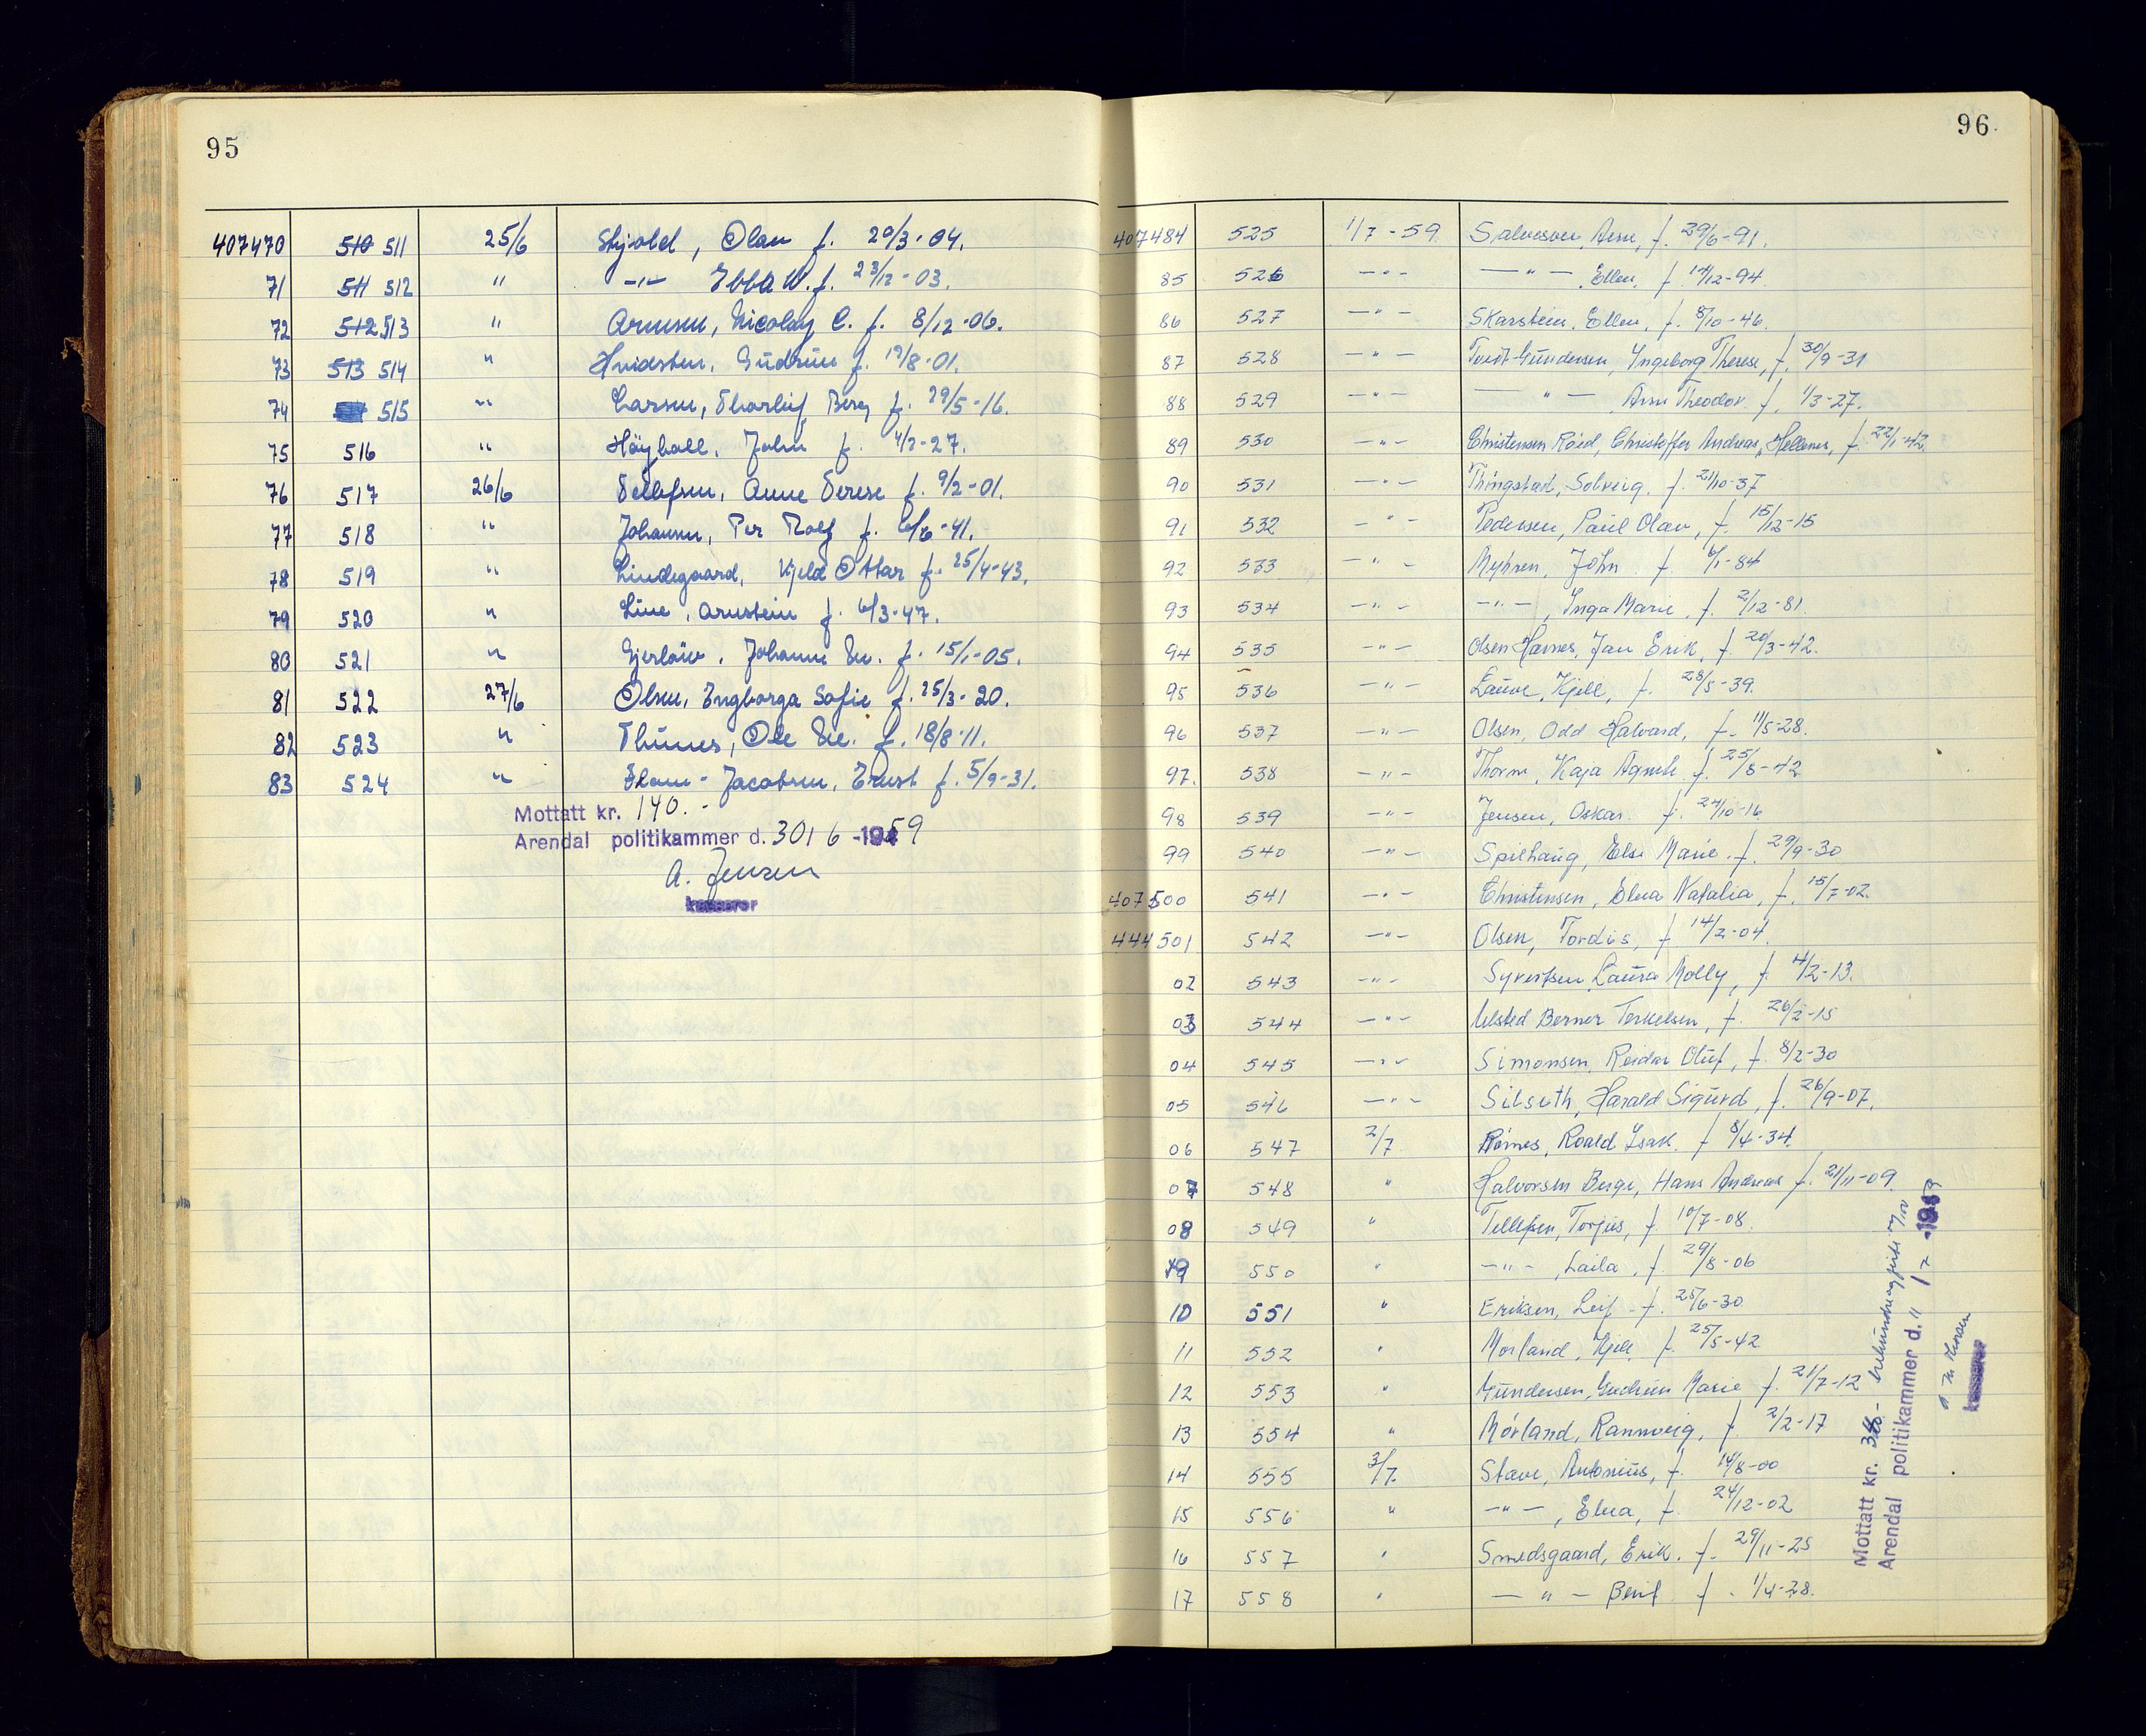 95
407470 510 511 25/6 Skjold, Olav f. 20/3-04.
71 511 512 " -"- Ebba W. f. 23/12-03.
72 512 513 " Arnesen, Nicolay C. f. 8/12-06.
73 513 514 " Hvidsten, Gudrun f. 19/8-01.
74 515 " Larsen, Thorleif Berg f. 29/5-16.
75 516 " Höyboll, John f. 4/3-27.
76 517 26/6 Tellefsen, Anne Terese f. 9/2-01.
77 518 " Johansen, Per Rolf f. 6/6-41.
78 519 " Lindegaard, Kjeld Ottar f. 25/4-43.
79 520 " Line, Arnstein f. 6/3-47.
80 521 " Gjerlöw, Johanne f. 15/1-05.
81 522 27/6 Olsen, Engborga Sofie f. 25/3-20.
82 523 " Thunes, Ole f. 18/8-11.
83 524 " Flam-Jacobsen, Ernst f. 5/9-31.
Mottatt kr. 140.-
Arendal politikammer d. 30/6-1959
A. Jensen
kasserer
96
407484 525 1/7-59 Salvesen, Arne, f. 29/6-91.
85 526 -"- -"- Ellen, f. 14/12-94
86 527 -"- Skarstein, Ellen, f. 8/10-46.
87 528 -"- Tvedt-Gundersen, Yngeborg Therese, f. 30/9-31
88 529 -"- -"- Arne Theodor f. 1/3-27.
89 530 -"- Christensen Röed, Christoffer Andreas Hellenes, f. 22/1-42.
90 531 -"- Thingstad, Solveig. f. 21/10-37
91 532 -"- Pedersen, Paul Olav, f. 15/12-15
92 533 -"- Myhren, John f. 6/1-84
93 534 -"- -"-, Inga Marie, f. 2/12-81.
94 535 -"- Olsen Harnes, Jan Erik, f. 20/3-42.
95 536 -"- Lauve, Kjell, f. 28/5-39.
96 537 -"- Olsen, Odd Halvard, f. 11/5-28.
97. 538 -"- Thorne, Kaja Agneth f. 25/8-42
98 539 -"- Jensen, Oskar. f. 24/10-16
99 540 -"- Spilhaug, Else Marie. f. 29/9-30
407500 541 -"- Christensen, Elna Natalia, f. 15/7-02.
444501 542 -"- Olsen, Tordis, f 14/2-04.
02 543 -"- Syvertsen Laura Molly, f. 4/2-13.
03 544 -"- Ulsted Berner Terkelsen, f. 26/2-15
04 545 -"- Simonsen, Reidar Oluf, f. 8/2-30
05 546 -"- Silseth, Harald Sigurd, f. 26/9-07.
06 547 2/7 Römes, Roald Isak. f 8/4-34.
07 548 " Halvorsen Berge, Hans Andreas f. 21/11-09.
08 549 " Tellefsen, Torjus, f. 10/7-08.
09 550 " -"-, Laila, f. 29/8-06
10 551 " Eriksen, Leif - f. 25/6-30
11 552 " Morland, Kjell, f. 25/5-42
12 553 " Gundersen, Gudrun Marie f. 21/7-12
13 554 " Mörland, Rannveig, f. 2/2-17
14 555 3/7. Stave, Antonius, f. 14/8-00
15 556 " -"-, Elna, f. 24/12-02
16 557 " Smedsgaard, Erik. f. 29/11-25
17 558 " -"- Berit f. 1/4-28.
Mottatt kr. 340.-
Arendal politikammer d. 11/7-1959
kasserer